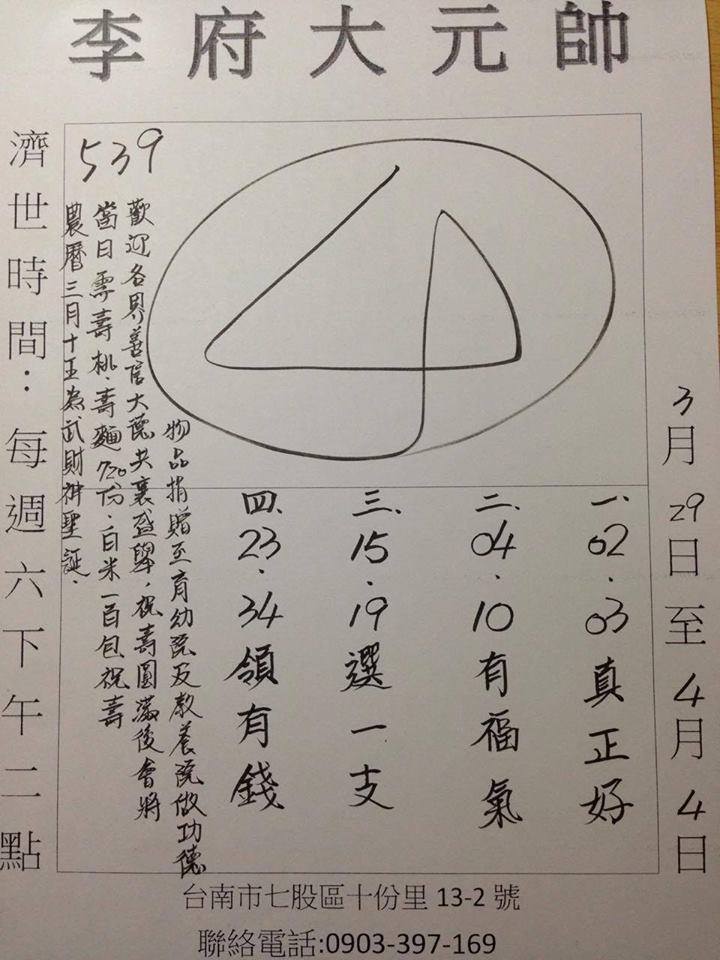 李府大元帥
3月29日至4月4日
一、02.03真正好
二、04.10有福氣
三、15.19選一支
四、23.34領有錢
539
農曆三月十五為武財神聖誕.
當日需壽桃.壽麵720份.白米一百包祝壽
歡迎各界善信大德共襄盛舉,祝壽圓滿後會將
物品捐贈至育幼院及教養院做功德
濟世時間:每週六下午二點
台南市七股區十份里13-2號
聯絡電話:0903-397-169